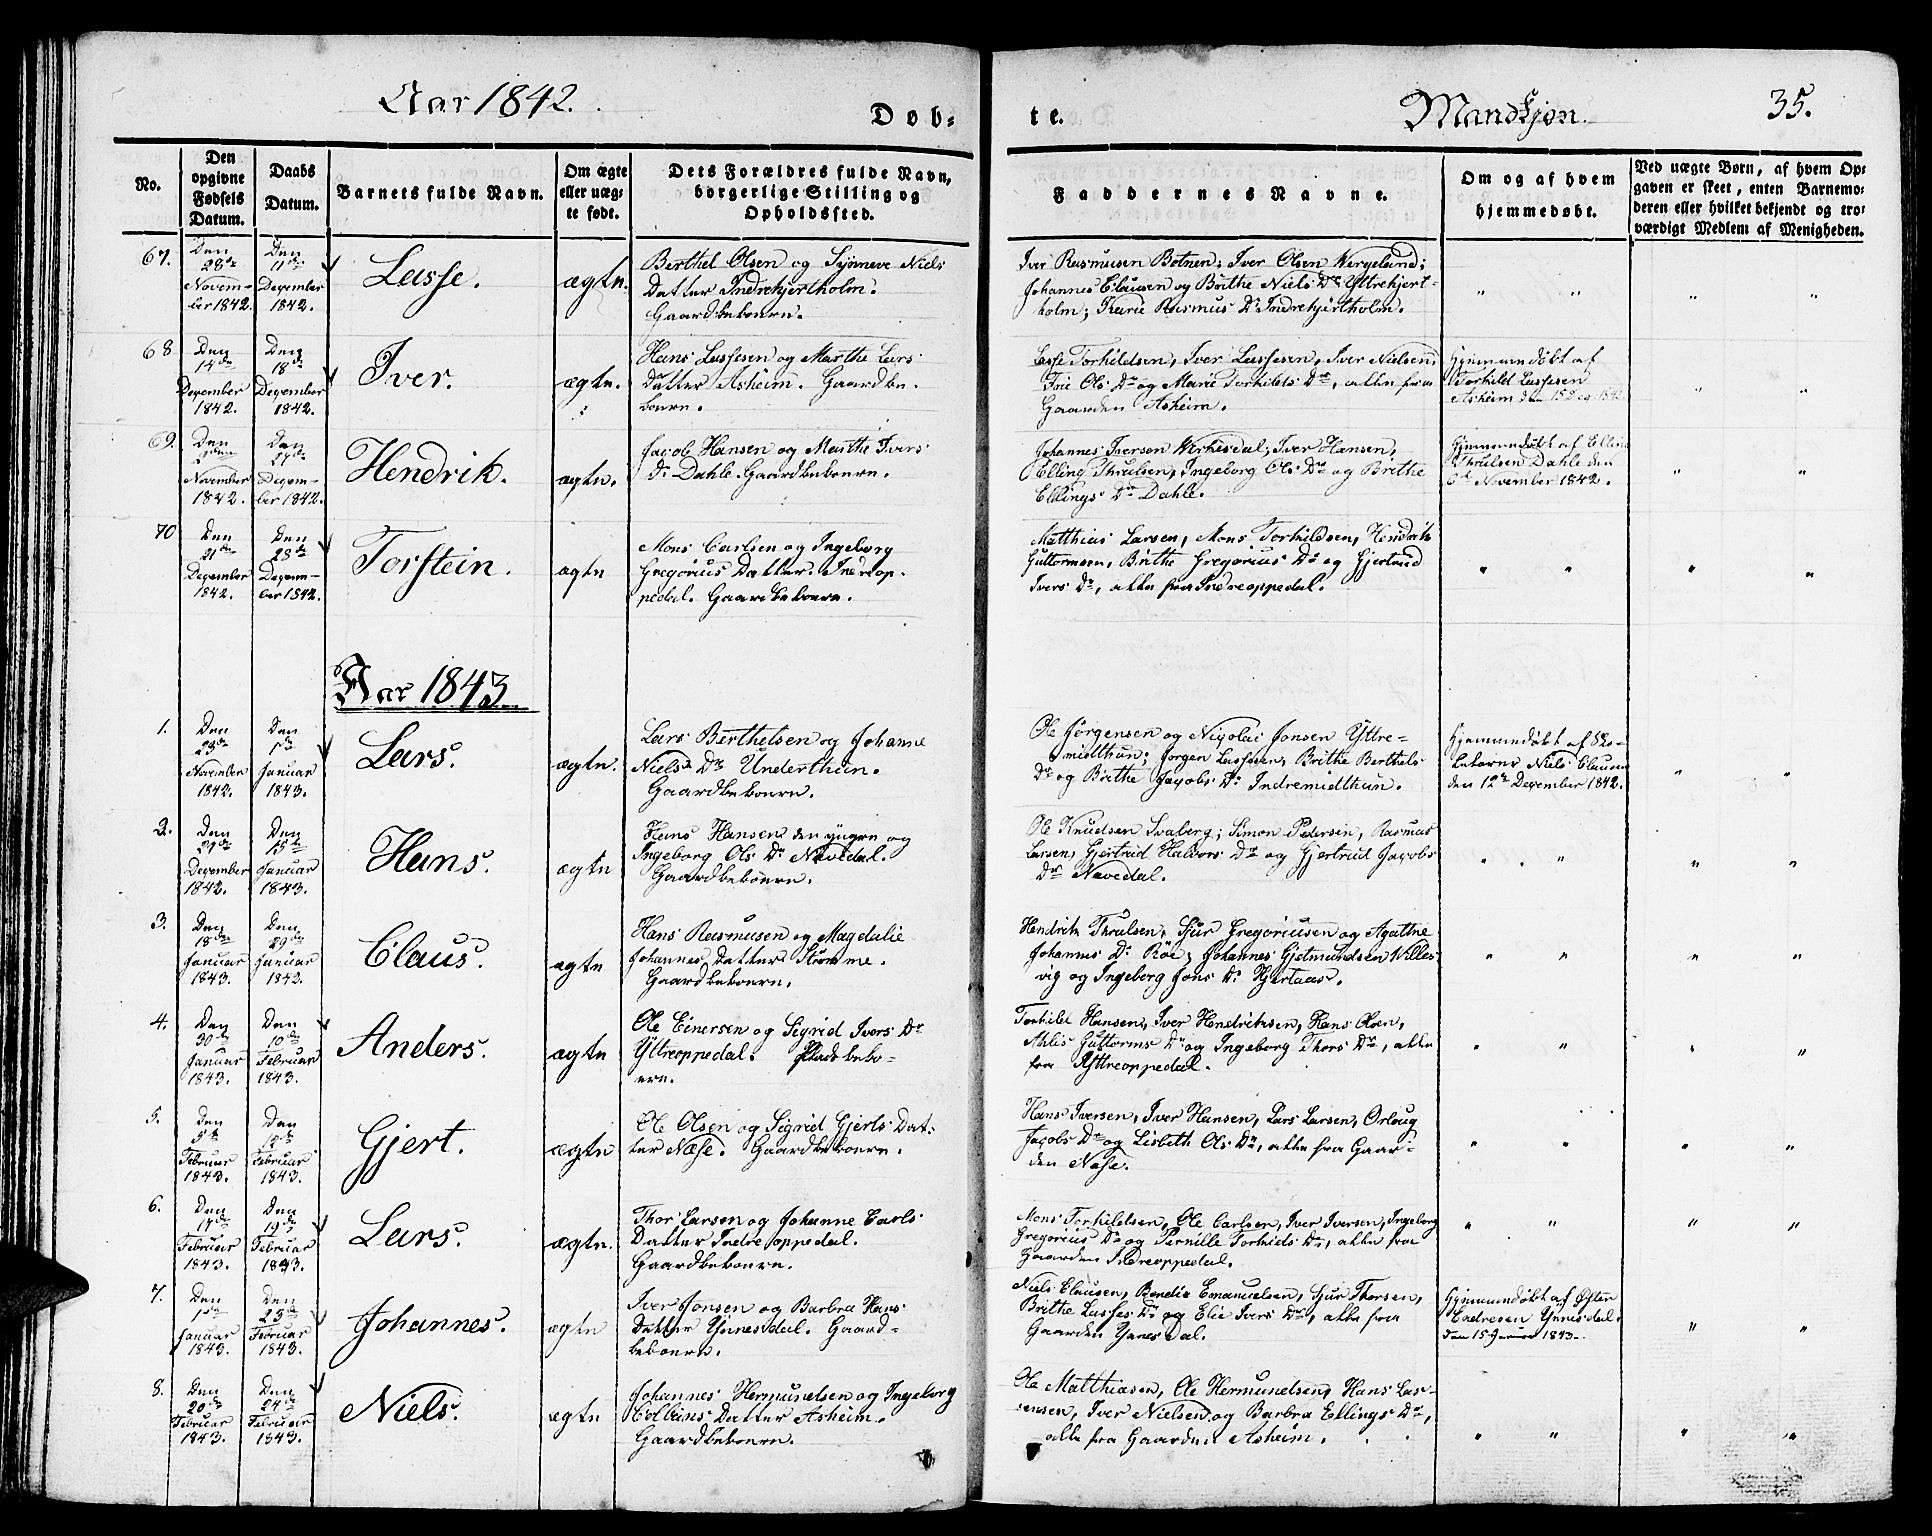 Aar 1842.
Døb-
te.
Mandkjøn.
35.
No.
Den opgivne Fødsels Datum.
Daabs Datum.
Barnets fulde Navn.
Om ægte eller uægte født.
Dets Forældres fulde Navn, borgerlige Stilling og Opholdssted.
Faddernes Navne.
Om og af hvem hjemmedøbt.
Ved uægte Børn, af hvem Opgaven er skeet, enten Barnemoderen eller hvilket bekjendt og troværdigt Medlem af Menigheden.
67.
Den 28de November 1842.
Den 11te December 1842.
Lasse.
ægte.
Berthel Olsen og Synneve Niels
Datter Indrehjertholm.
Gaardbeboere.
Iver Rasmusen Botnen; Iver Olsen Vergeland;
Johannes Clausen og Brithe Niels Dr Yttrehjert-
holm; Kari Rasmus Dr Indrehjertholm.
" " " "
68
Den 14de December 1842.
Den 18de December 1842.
Iver.
ægte.
Hans Lassesen og Marthe Lars
Datter Asheim. Gaardbe-
boere.
Lasse Torkildsen, Iver Lassesen, Iver Nielsen,
Ols Dr og Marie Torkilds Dr, alle fra
Gaarden Asheim.
Hjemmedøbt af
Torkild Lassesen
Asheim den
" "
69.
Den November 1842.
Den 27de December 1842.
Hendrik.
ægte.
Jacob Hansen og Marthe Ivers
Dr Dahle. Gaardbeboere.
Johannes Iversen Verkesdal, Iver Hansen,
Elling Thrulsen, Ingeborg Ols Dr og Brithe
Ellings Dr Dahle.
Hjemmedøbt af Elling
Thrulsen Dahle den
6te November 1842.
" "
70
Den 21de December 1842.
Den 28de December 1842.
Torstein.
ægte
Mons Carlsen og Ingeborg
Gregorius Datter. Indreop-
pedal. Gaardbeboere.
Matthias Larsen, Mons Torkildsen, Hendrik
Guttormsen, Brithe Gregorius Dr og Gjertrud
Ivers Dr, alle fra Indreoppedal.
" " " "
Aar 1843.
1.
Den 23de November 1842.
Den 1ste Januar 1843.
Lars.
ægte.
Lars Berthelsen og Johanne
Niels Dr Underthun.
Gaardbeboere.
Ole Jørgensen og Nigolai Jonsen Yttre-
midthun; Jørgen Lassesen, Brithe Berthels
Dr og Brithe Jacobs Dr Indremidthun.
Hjemmedøbt af Sko-
leholer Niels Clausen
den 12te December 1842.
" "
2.
Den December 1842.
Den 15de Januar 1843.
Hans.
ægte
Hans Hansen den yngre og
Ingeborg Ols Dr Navedal.
Gaardbeboere.
Ole Knudsen Svaberg; Simon Pedersen, Rasmus
Larsen, Gjertrud Halvors Dr og Gjertrud Jacobs
Dr Navedal.
" " " "
3.
Den 18de Januar 1843.
Den 29de Januar 1843.
Claus.
ægte
Hans Rasmusen og Magdalie
Johannes Datter Strømme.
Gaardbeboere.
Hendrik Thrulsen, Sjur Gregoriusen og Agathe
Johannes Dr Røe; Johannes Gjetmundsen Willes-
vig og Ingeborg Jons Dr Hjertaas.
" " " "
4.
Den 30de Januar 1843.
Den 10de Februar 1843.
Anders.
ægte
Ole Einersen og Sigrid Ivers Dr
Yttreoppedal. Pladsbebo-
ere.
Torkild Hansen, Iver Hendriksen, Hans Olsen,
Ahlis Guttorms Dr og Ingeborg Thors Dr, alle
fra Yttreoppedal.
" " " "
5.
Den 5te Februar 1843.
Den 12te Februar 1843.
Gjert.
ægte
Ole Olsen og Sigrid Gjerts Dat-
ter Næse. Gaardbeboere.
Hans Iversen, Iver Hansen, Lars Larsen, Orlaug
Jacobs Dr og Lisbeth Ols Dr, alle fra Gaar-
den Næse.
" " " "
6.
Den 17de Februar 1843.
Den 19de Februar 1843.
Lars.
ægte.
Thor Larsen og Johanne Carls
Datter Indre oppedal.
Gaardbeboere.
Mons Torkildsen, Ole Carlsen, Iver Iversen, Ingeborg
Gregorius Dr og Pernille Torkilds Dr, alle fra
Gaarden Indreoppedal.
" " " "
7.
Den 1ste Januar 1843.
Den 23de Februar 1843.
Johannes.
ægte
Iver Jonsen og Barbra Hans
Datter Ynnesdal. Gaard-
beboere.
Niels Clausen, Bendix Emanuelsen, Sjur Thorsen,
Brithe Lasses Dr og Elie Ivers Dr, alle fra
Gaarden Ynnesdal.
Hjemmedøbt af Østen
Endresen Ynnesdal.
den 15 Januar 1843.
" "
8.
Den 20de Februar 1843.
Den 24de Februar 1843.
Niels.
ægte
Johannes Hermundsen og Ingeborg
Colbens Datter Asheim.
Gaardbeboere.
Ole Matthiasen, Ole Hermundsen, Hans Las-
sensen, Iver Nielsen og Barbra Ellings Dr,
alle fra Gaarden Asheim.
" " " "